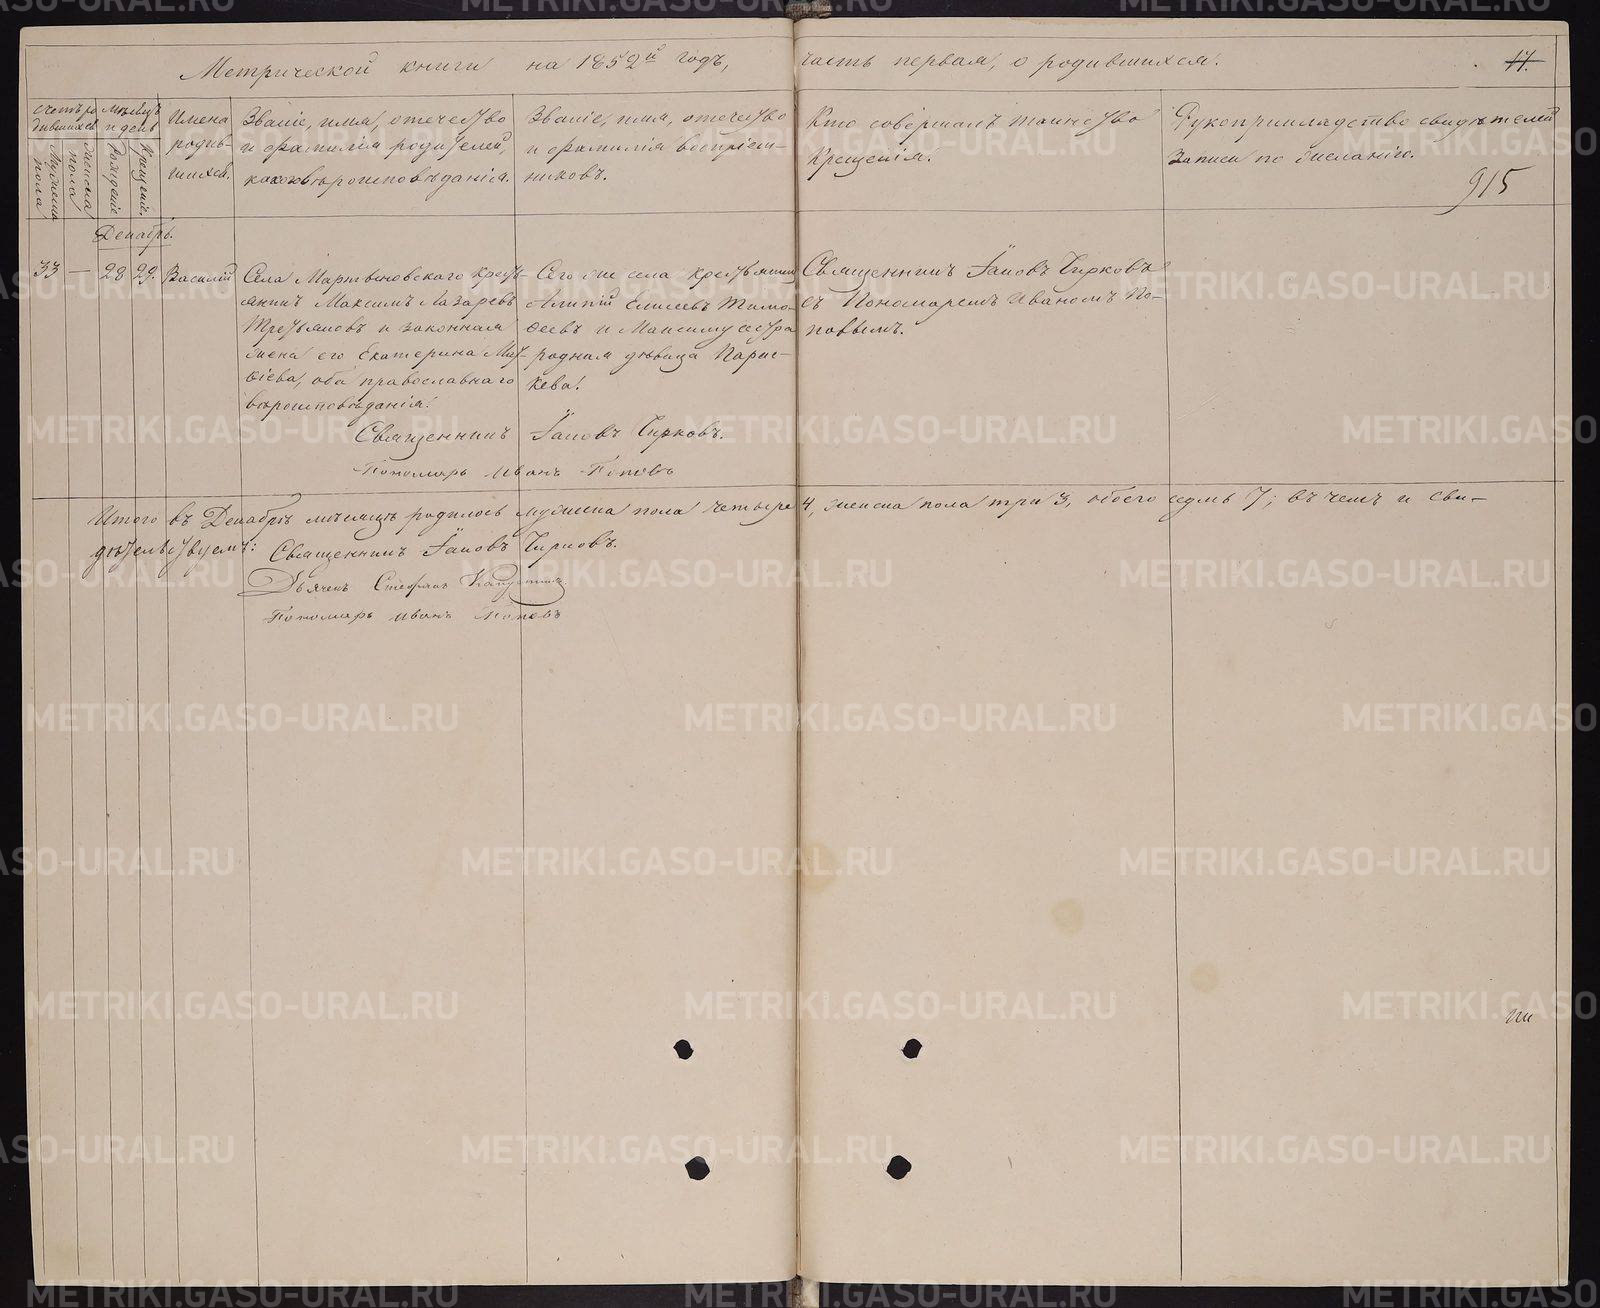 Метрической книги на 1852й годъ, часть первая, о родившихся.
17.
Счетъ ро-
дившихся
Мужеска
пола
Женска
пола
Мѣсяцъ
и день
Рожденіе
Крещеніе.
Имена
родив-
шихся.
Званіе, имя, отечество
и фамилія родителей,
какого вѣроисповѣданія.
Званіе, имя, отечество
и фамилія воспріем-
никовъ.
Кто совершалъ таинство
Крещенія.
Рукоприкладство свидѣтелей
записи по желанію.
915
Декабрь.
33 — 28 29. Василій
Села Мартыновскаго крест-
янинъ Максимъ Лазаревъ
Третьяковъ и законная
жена его Екатерина Мат-
ѳіева, оба православнаго
вѣроисповѣданія.
Сего же села крестьянинъ
Алипій Елисеевъ Тимо-
ѳеевъ и Максиму сестра
родная дѣвица Парас-
кева.
Священникъ Іаковъ Чирковъ
съ Пономаремъ Иваномъ По-
повымъ.
Священникъ Іаковъ Чирковъ.
Пономарь Иванъ Поповъ
Итого въ Декабрѣ мѣсяцѣ родилось мужеска пола четыре 4, женска пола три 3, обоего седмь 7; въ чемъ и сви-
дѣтельствуемъ:
Священникъ Іаковъ Чирковъ.
Дьячекъ Стефанъ Капустинъ
Пономарь Иванъ Поповъ
METRIKI.GASO-URAL.RU